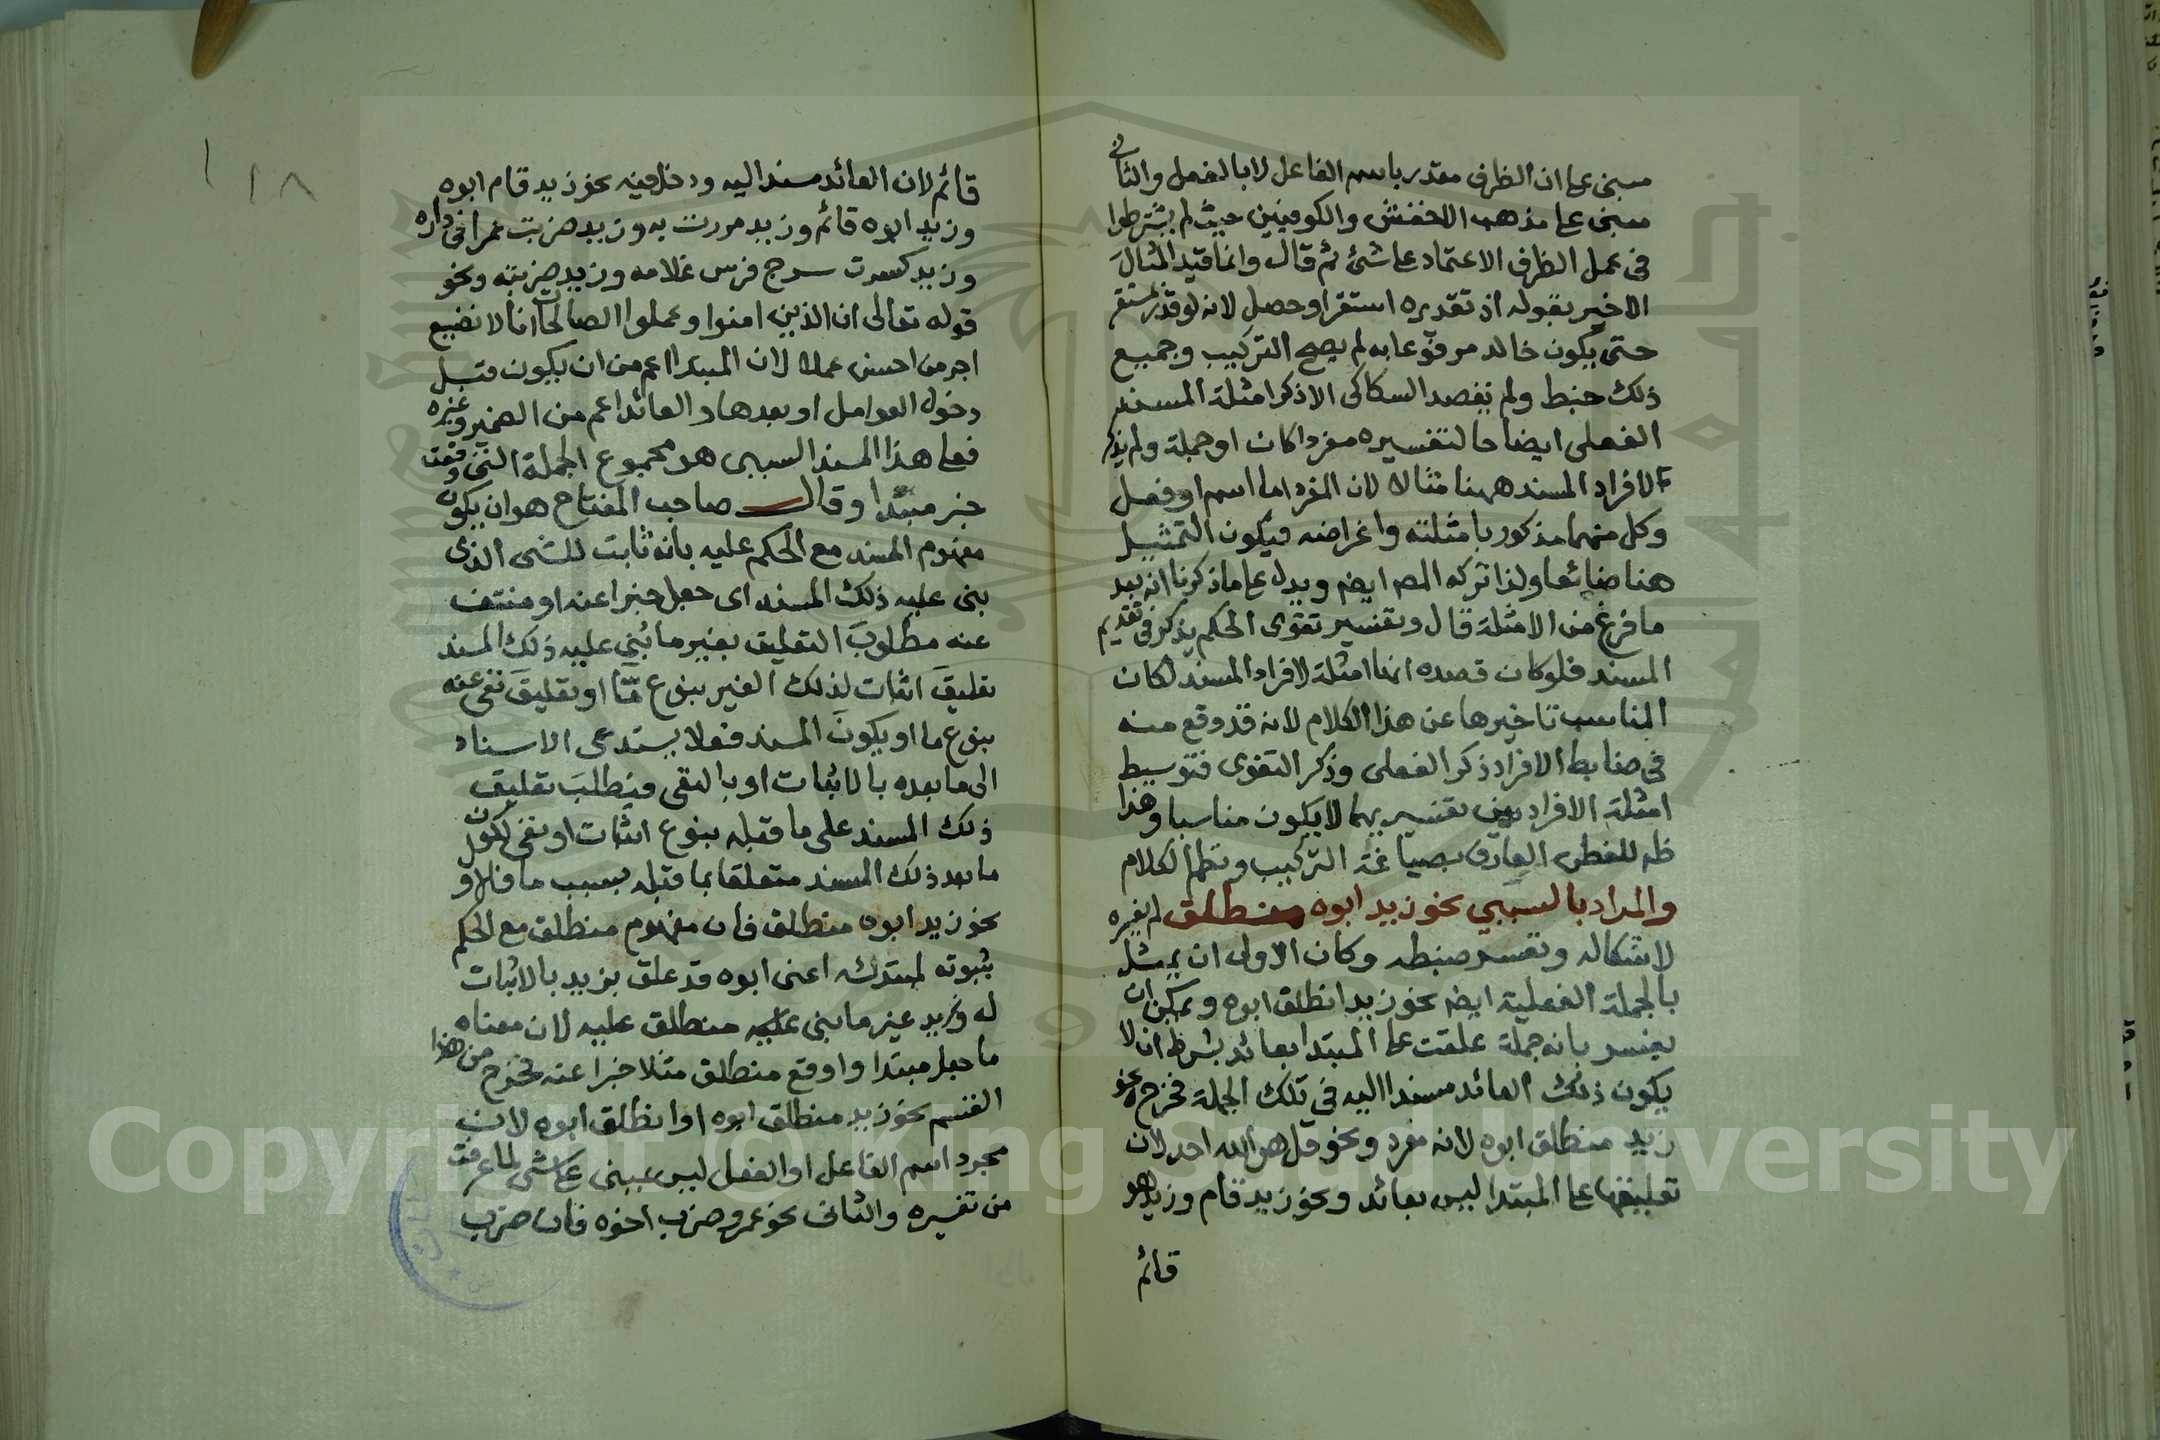 مبنى على ان الظرف مقدر باسم الفاعل لا بالفعل والثانى
مبنى على مذهب الاخفش والكوفيين حيث لم يشترطوا
فى عمل الظرف الاعتماد على شئ ثم قال وانما قيد المثال
الاخير بقوله اذ تقديره استقر او حصل لانه لو قدر مستقر
حتى يكون خالد مرفوعا به لم يصح التركيب وجميع
ذلك خبط ولم يقصد السكاكى الا ذكر امثلة المسند
الفعلى ايضاحا لتفسيره مفردا كان او جملة ولم يذكر
لافراد المسند ههنا مثالا لان المفرد اما اسم او فعل
وكل منهما مذكور بامثلته واغراضه فيكون التمثيل
هنا ضائعا ولذا تركه المص ايضا ويدل على ما ذكرنا انه بعد
ما فرغ من الامثلة قال وتفسير تقوى الحكم يذكر فى تقديم
المسند فلو كان قصده انها امثلة لافراد المسند لكان
المناسب تاخيرها عن هذا الكلام لانه قد وقع منه
فى ضابط الافراد ذكر الفعلى وذكر التقوى فتوسيط
امثلة الافراد بين تفسيريهما لا يكون مناسبا وهذا
ظ للفطن العارف بصياغة التركيب ونظم الكلام
والمراد بالسببي نحو زيد ابوه منطلق لم يفسره
لاشكاله وتعسر ضبطه وكان الاولى ان يمثل
بالجملة الفعلية ايضا نحو زيد انطلق ابوه ويمكن ان
يفسر بانه جملة علقت على المبتدا بعائد بشرط ان لا
يكون ذلك العائد مسندا اليه فى تلك الجملة فخرج نحو
زيد منطلق ابوه لانه مفرد ونحو قل هو الله احد لان
تعليقها على المبتدا ليس بعائد ونحو زيد قام وزيد هو
قائم
١١٨
قائم لان العائد مسند اليه ودخل فيه نحو زيد قام ابوه
وزيد ابوه قائم وزيد مررت به وزيد ضربت عمرا فى داره
وزيد كسرت سرج فرس غلامه وزيد ضربته ونحو
قوله تعالى ان الذين امنوا وعملوا الصالحات انا لا نضيع
اجر من احسن عملا لان المبتدا اعم من ان يكون قبل
دخول العوامل او بعدها والعائد اعم من الضمير وغيره
فعلى هذا المسند السببى هو مجموع الجملة التى وقعت
خبر مبتدا وقال صاحب المفتاح هو ان يكون
مفهوم المسند مع الحكم عليه بانه ثابت للشى الذى
بنى عليه ذلك المسند اى جعل خبرا عنه او منتف
عنه مطلوبَ التعليق بغير ما بُنى عليه ذلك المسند
تعليقَ اثبات لذلك الغير بنوع مّا او تعليقَ نفى عنه
بنوع ما او يكونَ المسند فعلا يستدعى الاسناد
الى ما بعده بالاثبات او بالنفى فيطلبَ تعليق
ذلك المسند على ما قبله بنوع اثبات او نفى لكون
ما بعد ذلك المسند متعلقا بما قبله بسبب ما فالاول
نحو زيد ابوه منطلق فان مفهوم منطلق مع الحكم
بثبوته لمبتدئه اعنى ابوه قد علق بزيد بالاثبات
له وزيد غير ما بنى عليه منطلق عليه لان معناه
ما جعل مبتدا واوقع منطلق مثلا خبرا عنه فخرج من هذا
القسم نحو زيد منطلق ابوه او انطلق ابوه لان
مجرد اسم الفاعل او الفعل ليس بمبنى على شى لما عرفت
من تفسيره والثانى نحو عمرو ضرب اخوه فان ضرب
Copyright © King Saud University